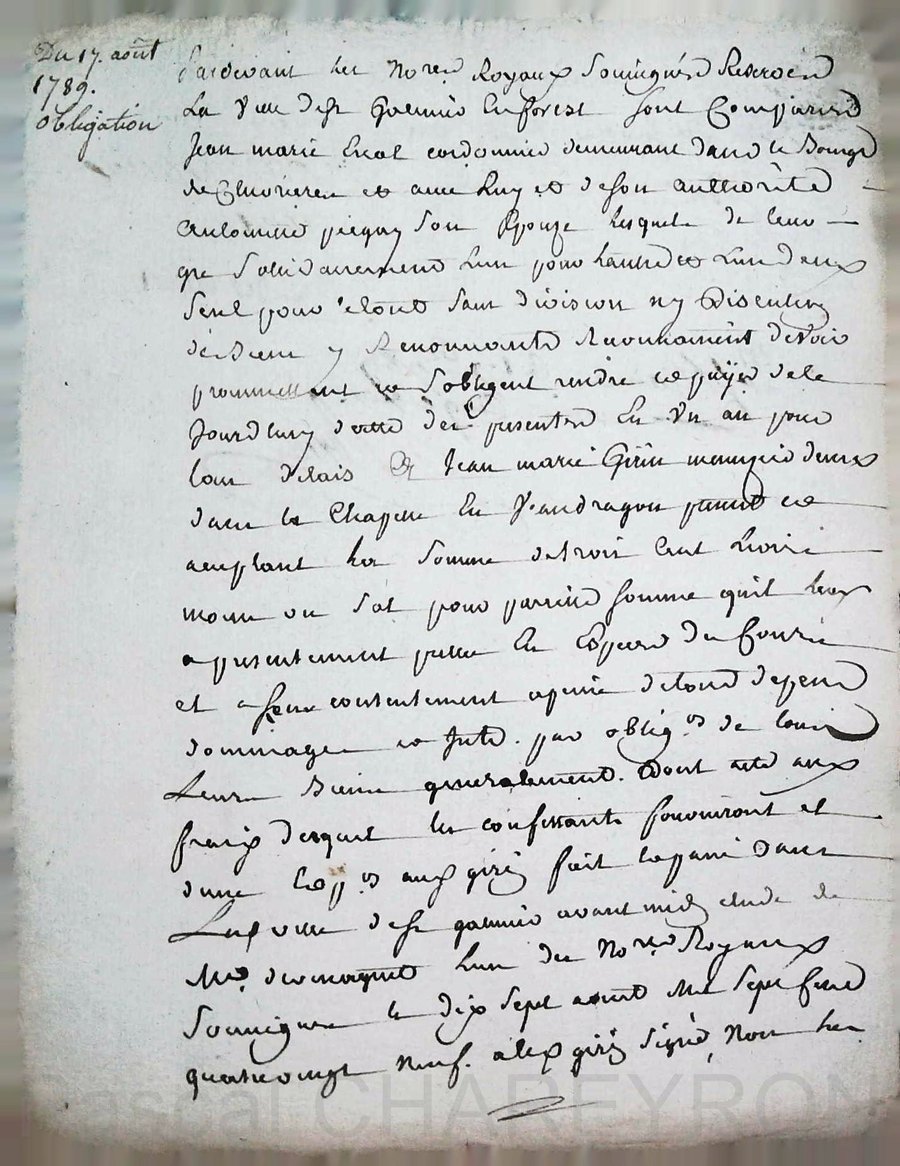 Du 17. août
1789.
obligation
Pardevant les No.res Royaux Soussignés Reservés
La ville de st Galmier En forest sont Comparus
Jean marie cordonnier demeurant dans le Bourg
de et avec Luy et de son authorité
son Epouse lesquels de leur
gre solidairement l'un pour l'autre et l'un d'eux
seul pour le tout sans division ny discution
de Biens y Renonçants Reconnaissent devoir
promettent et s'obligent rendre et payer de ce
Jourdhuy datte des presentes En un an pour
tout delais à Jean marie Girin demeurt
dans la Chapelle En present et
acceptant la somme de trois Cent Livres
moins un sol pour pareille somme qu'il leur
a presentement En Especes de Cours
et à leur contentement apeine de tous depens
dommages et Inte. par oblig.on de tous
Leurs Biens generalement. Dont acte aux
fraix desquels les confessants fourniront et
d'une Exp.on aux girin fait et passé dans
Lad ville de st galmier avant midy etude de
Me. l'un des No.res Royaux
Soussignés le dix sept aoust Mil sept cent
quatrevingt neuf. a led girin signé, non les
Pascal CHAREYRON